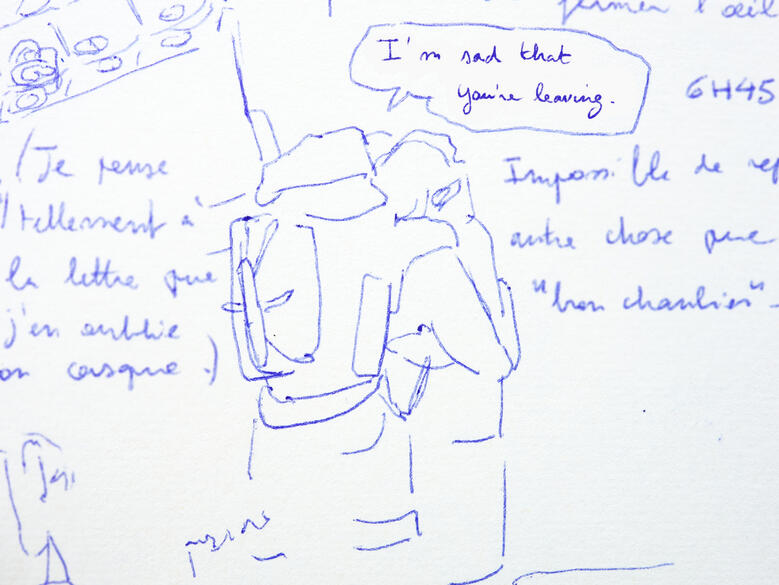 fermer l'œil
I'm sad that
you're leaving.
6H45
(Je pense
tellement à
la lettre que
j'en oublie
on casque.)
Impossible de rep
autre chose que
"bon chantier".